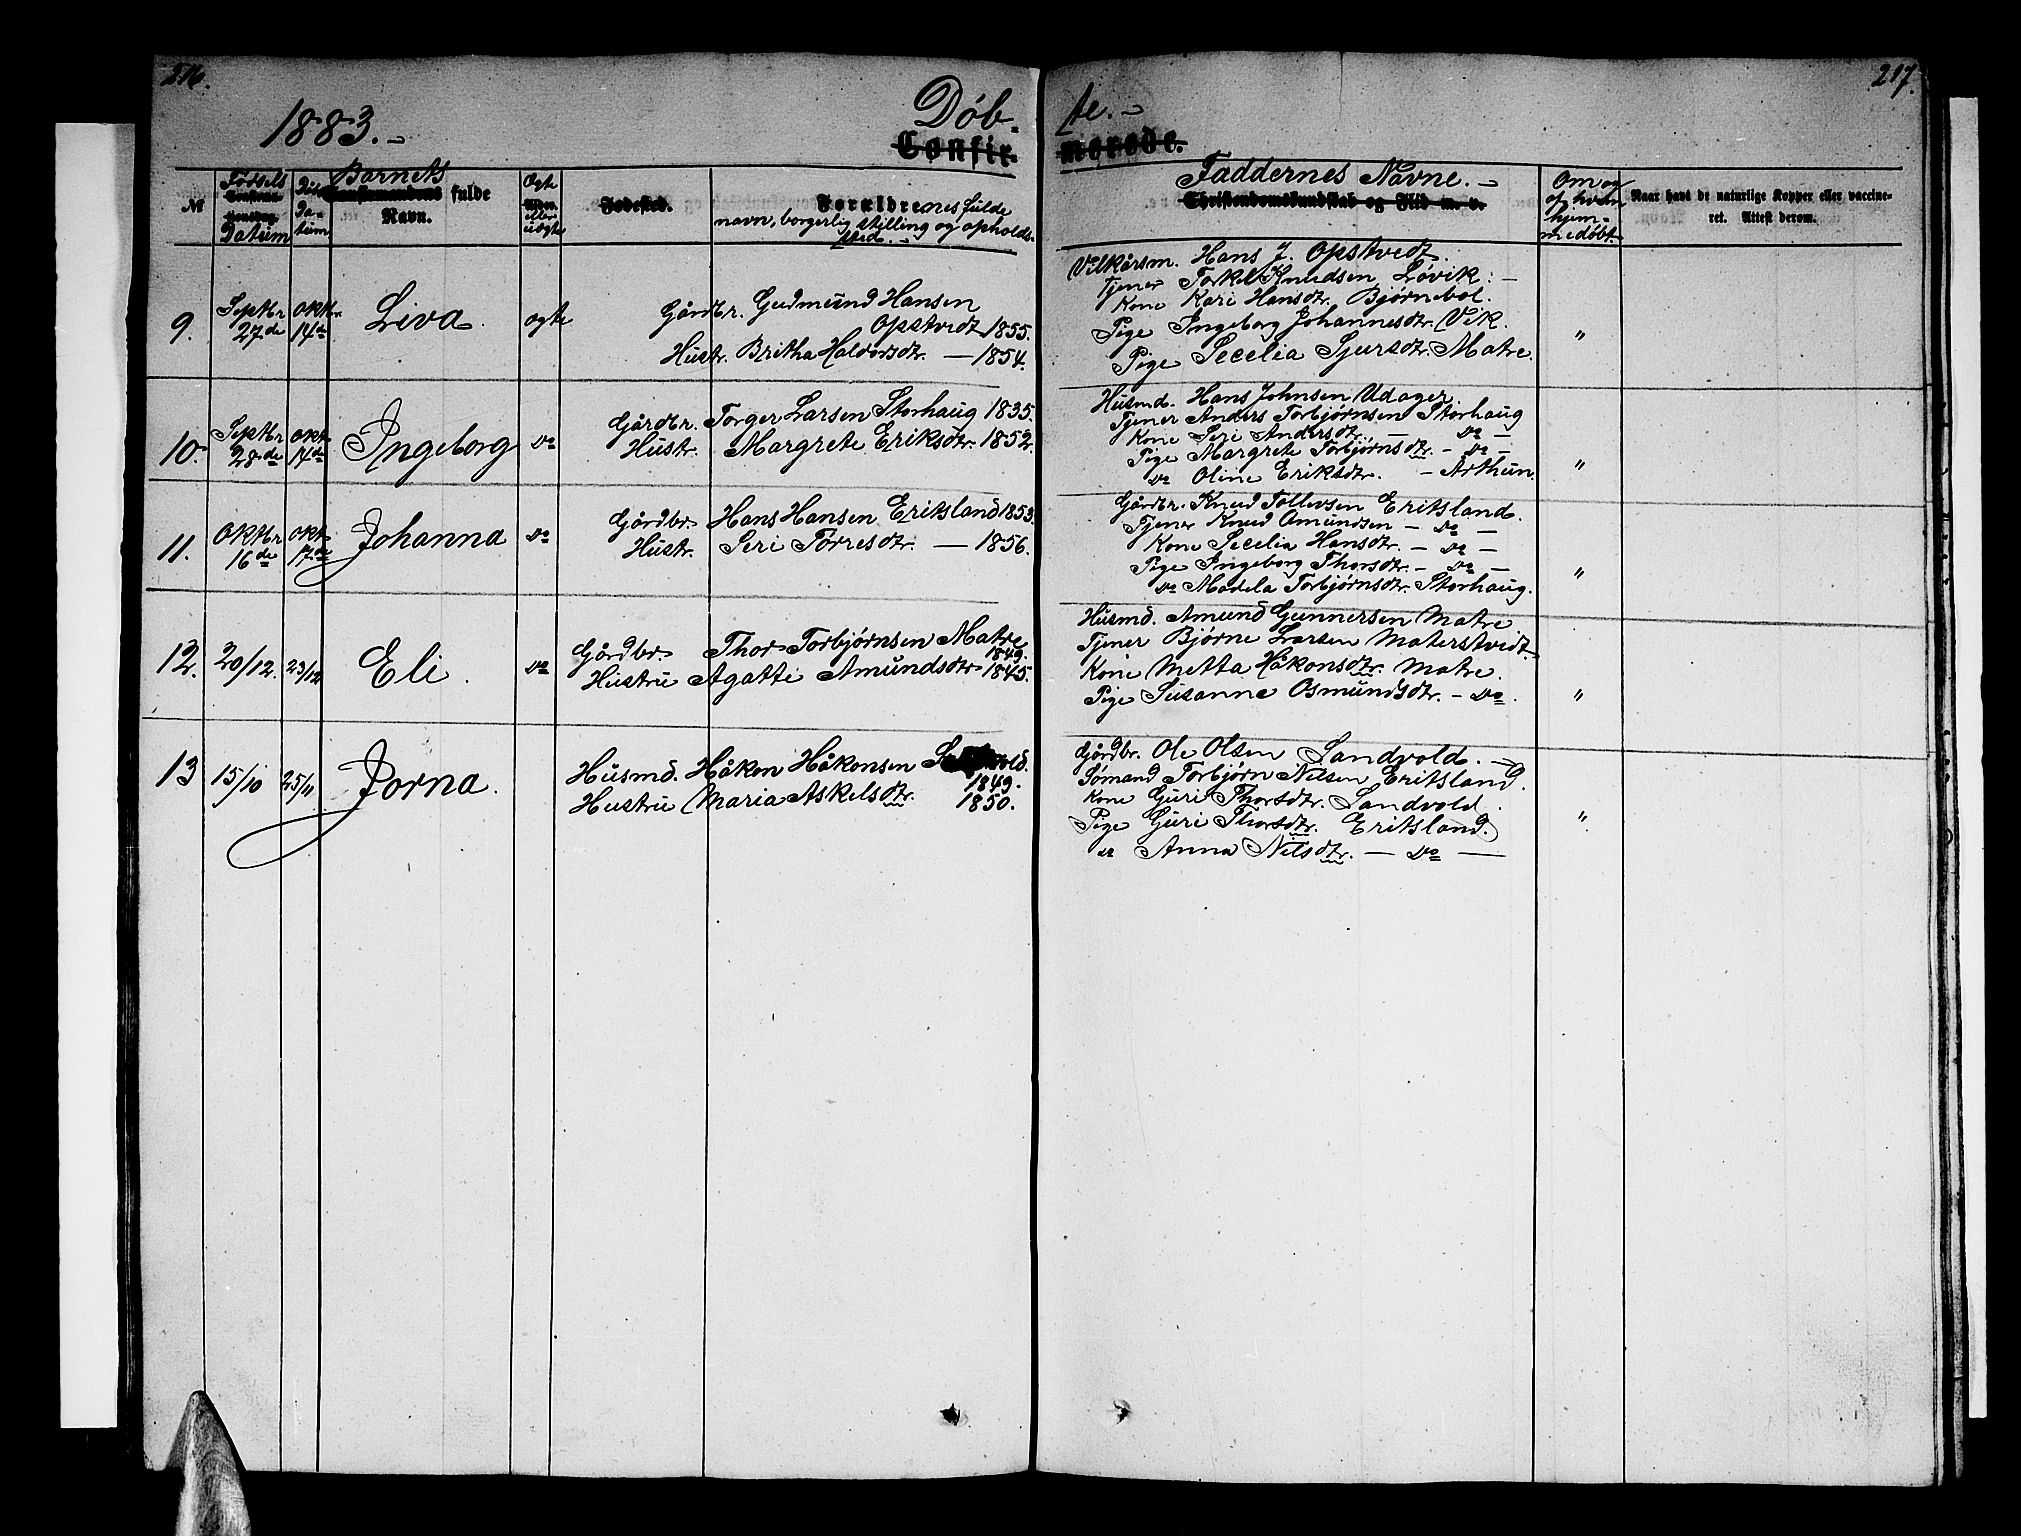 216.
217.
1883.-
Døb- te.-
Confir- merede.
№
Fødsels Datum
Datum
Barnets fulde Navn.
Ægte eller uægte
Fødested.
Forældrenes fulde navn, borgerlig stilling og opholds-sted.-
Faddernes Navne.-
Christendomskundskab og Flid m. v.
Om og af hvem hjem-medøbt.
Naar havt de naturlige Kopper eller vaccine-
ret. Attest derom.
9. Septbr 27de Oktbr. 14de Liva. ægte Gårdbr. Gudmund Hansen
Opstvedt 1855.
Hustr. Britha Haldorsdtr. — 1854.
Vilkårsm. Hans J. Opstvedt.
Tjener Torkel Knudsen Løvik. -
Kone Kari Hansdtr. Bjørnebol.
Pige Ingeborg Johannesdtr. Vik.
Pige Secelia Sjursdtr. Matre. "
10. Septbr 28de Okt. 14de Ingeborg do Gårdbr. Torger Larsen Storhaug 1835.
Hustr. Margrete Eriksdtr. 1852.
Husmd. Hans Johnsen Udager.
Tjener Anders Torbjørnsen Storhaug
Kone Seri Andersdtr. — do —
Pige Margrete Torbjørnsdtr. - do -
do Oline Eriksdtr. - Arthun. "
11. Oktbr 16de Okt. 17de Johanna do Gårdbr. Hans Hansen Eritsland 1853.
Hustr. Seri Torresdtr. — 1856.
Gårdbr. Knud Tollevsen Eritsland.
Tjener Knud Omundsen - do -
Kone Secelia Hansdtr. - do -
Pige Ingeborg Thorsdtr. - do -
do Madela Torbjørnsdtr. Storhaug. "
12. 20/12. 23/12 Eli. do Gårdbr. Thor Torbjørnsen Matre
1849.
Hustru Agatte Amundsdtr 1845.
Husmd. Amund Gunnersen Matre
Tjener Bjørne Larsen Materstvedt.
Kone Metta Håkonsdtr. Matre.
Pige Susanne Osmundsdtr. - do. "
13 15/10 25/11 Jorna. Husmd. Håkon Håkonsen
1849.
Hustru Maria Askelsdtr. 1850.
Gårdbr. Ole Olsen Sandvold. -
Sømand Torbjørn Nilsen Eritsland.
Kone Guri Thorsdtr. Sandvold.
Pige Guri Thorsdtr. Eritsland.
do Anna Nilsdtr. — do — "